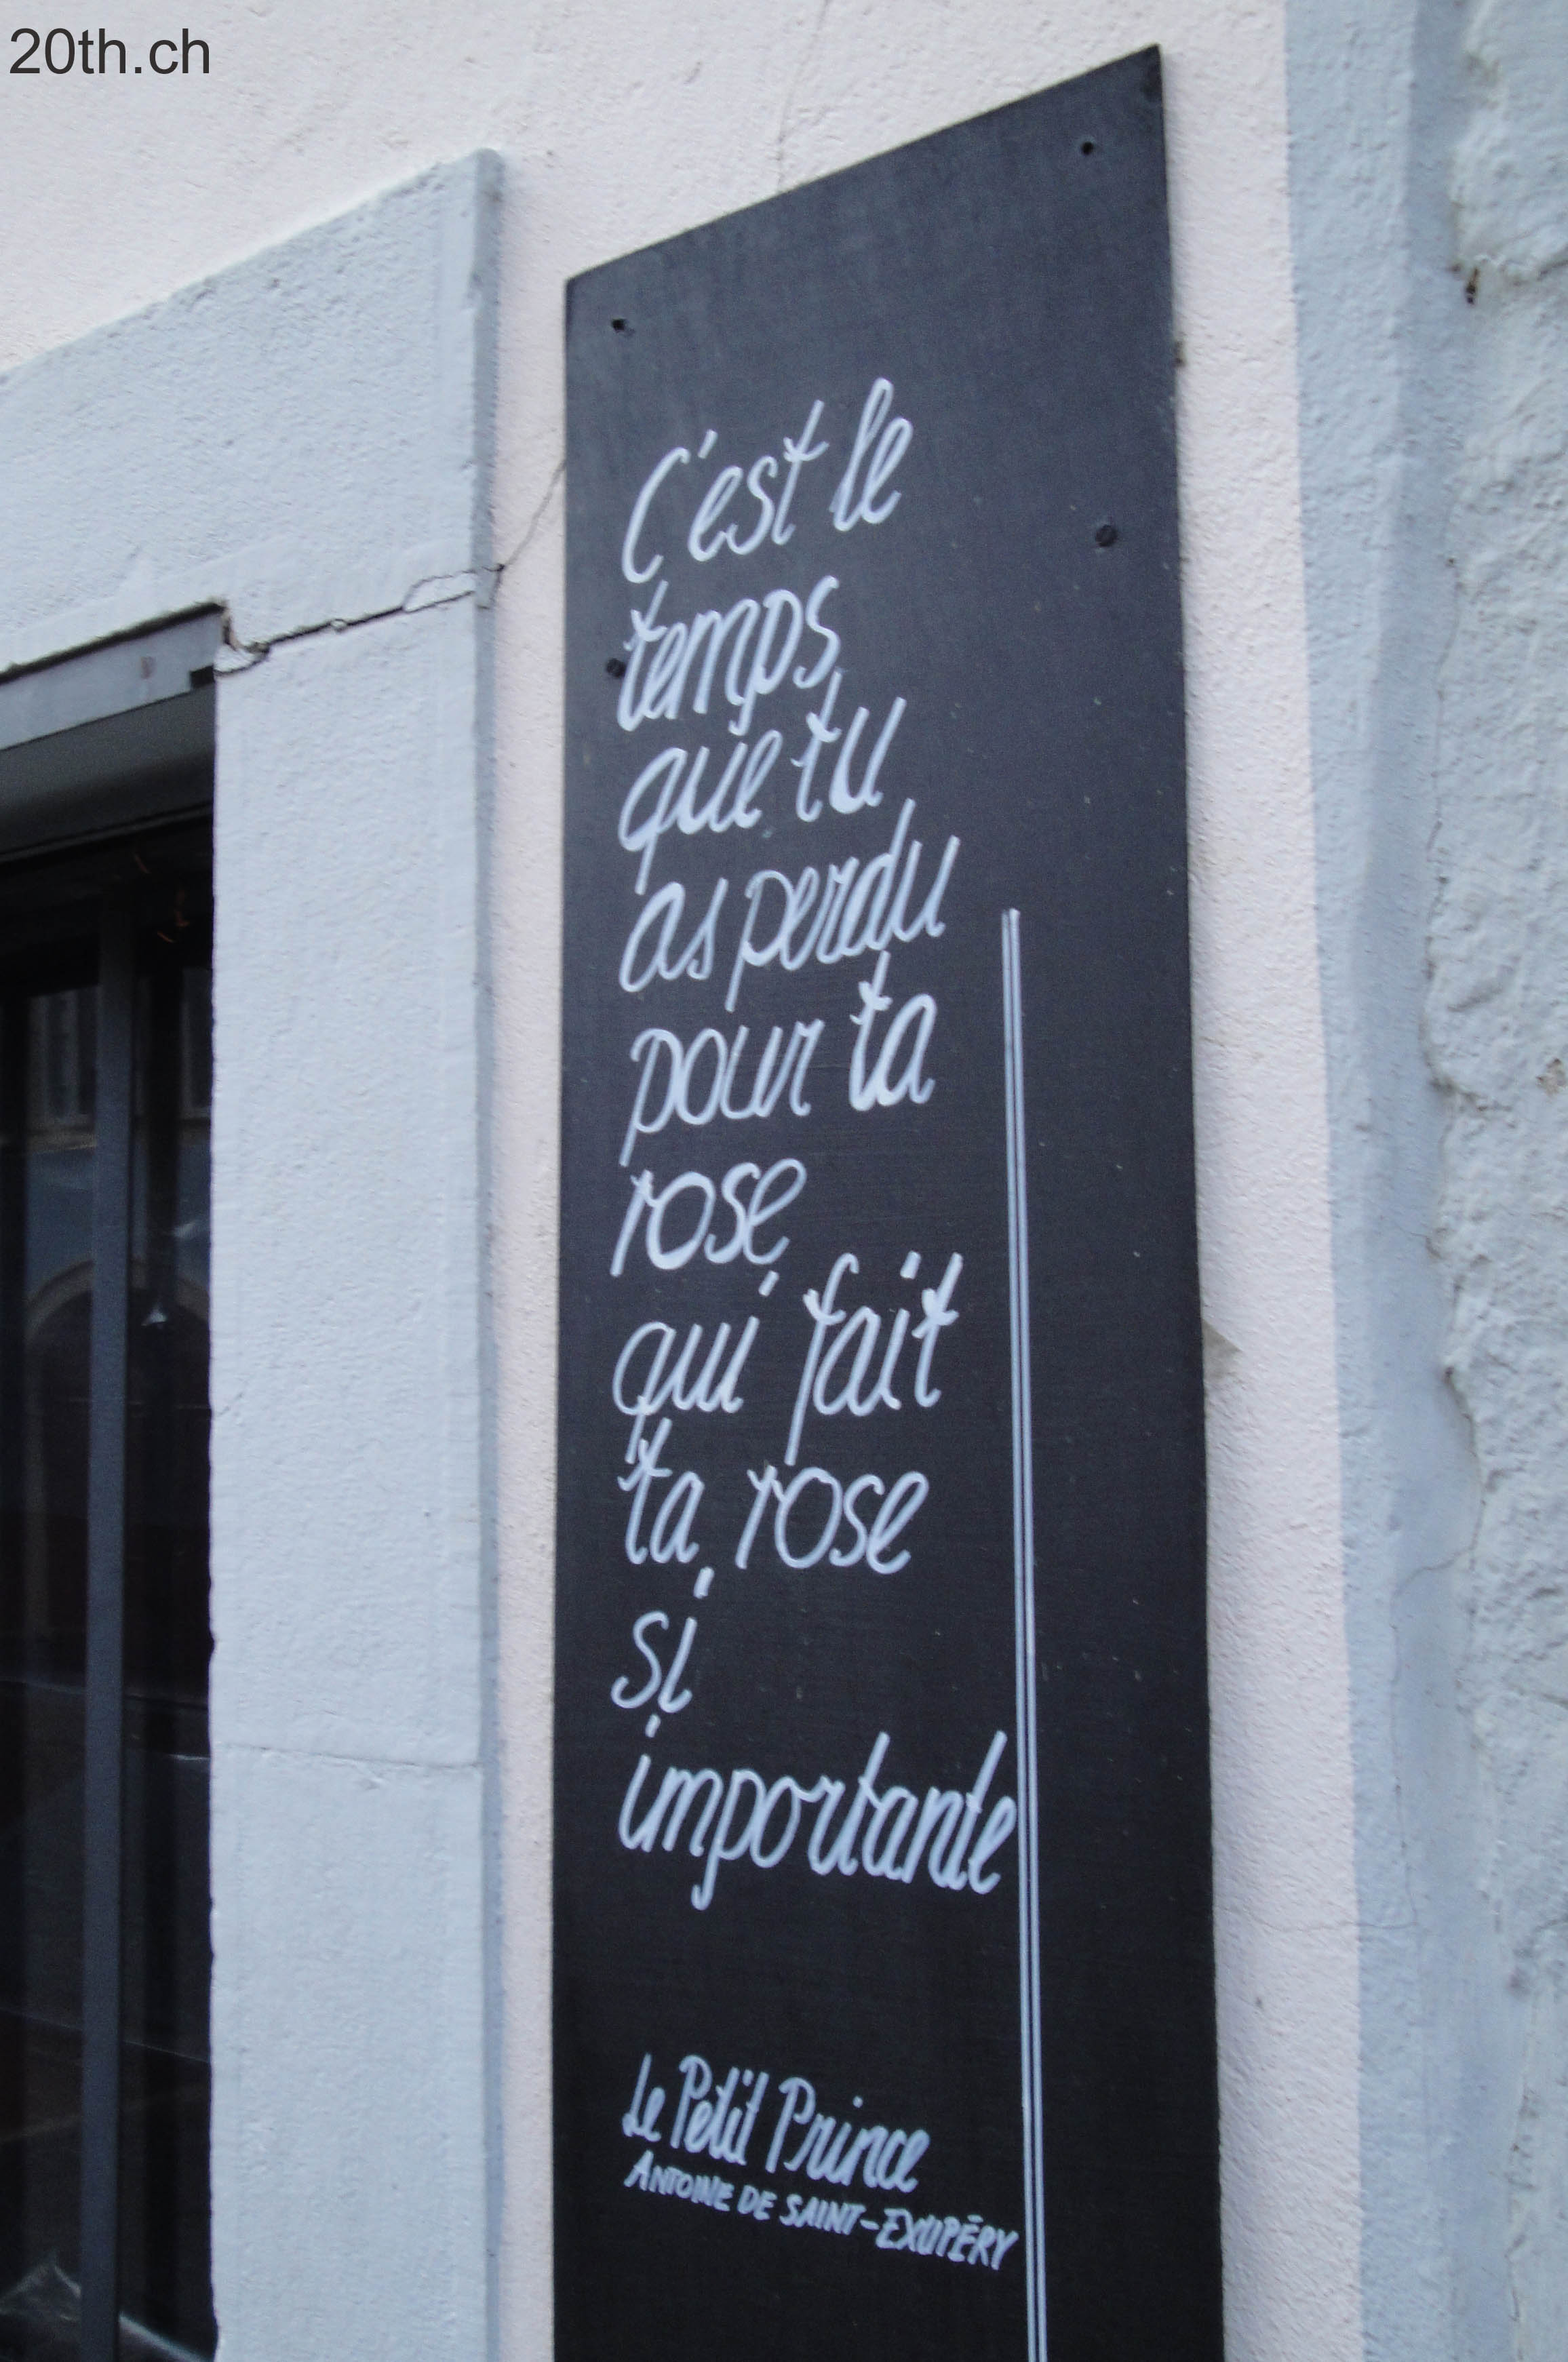 20th.ch
C'est le
temps
que tu
as perdu
pour ta
rose
qui fait
ta rose
si
importante
Le Petit Prince
ANTOINE DE SAINT-EXUPÉRY